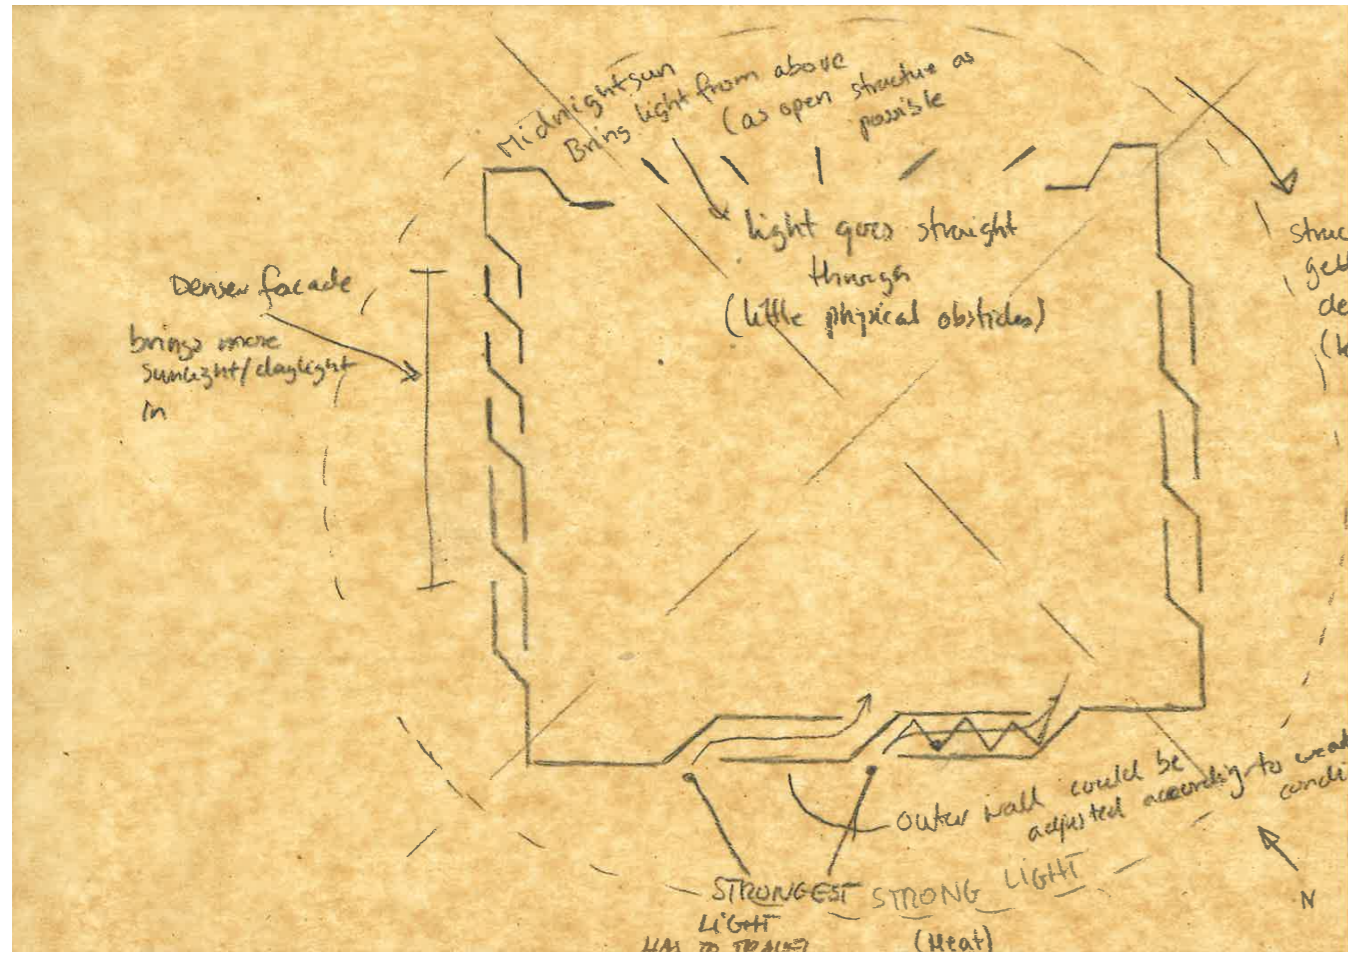 Midnightsun
Bring light from above
(as open structure as
possible
light goes straight
through
(little physical obstacles)
Denser facade
brings more
sunlight/daylight
in
struc
gett
de
(l
outer wall could be
adjusted according to weat
condi
STRONGEST
LIGHT
HAS TO TRAVEL
STRONG LIGHT
(Heat)
N